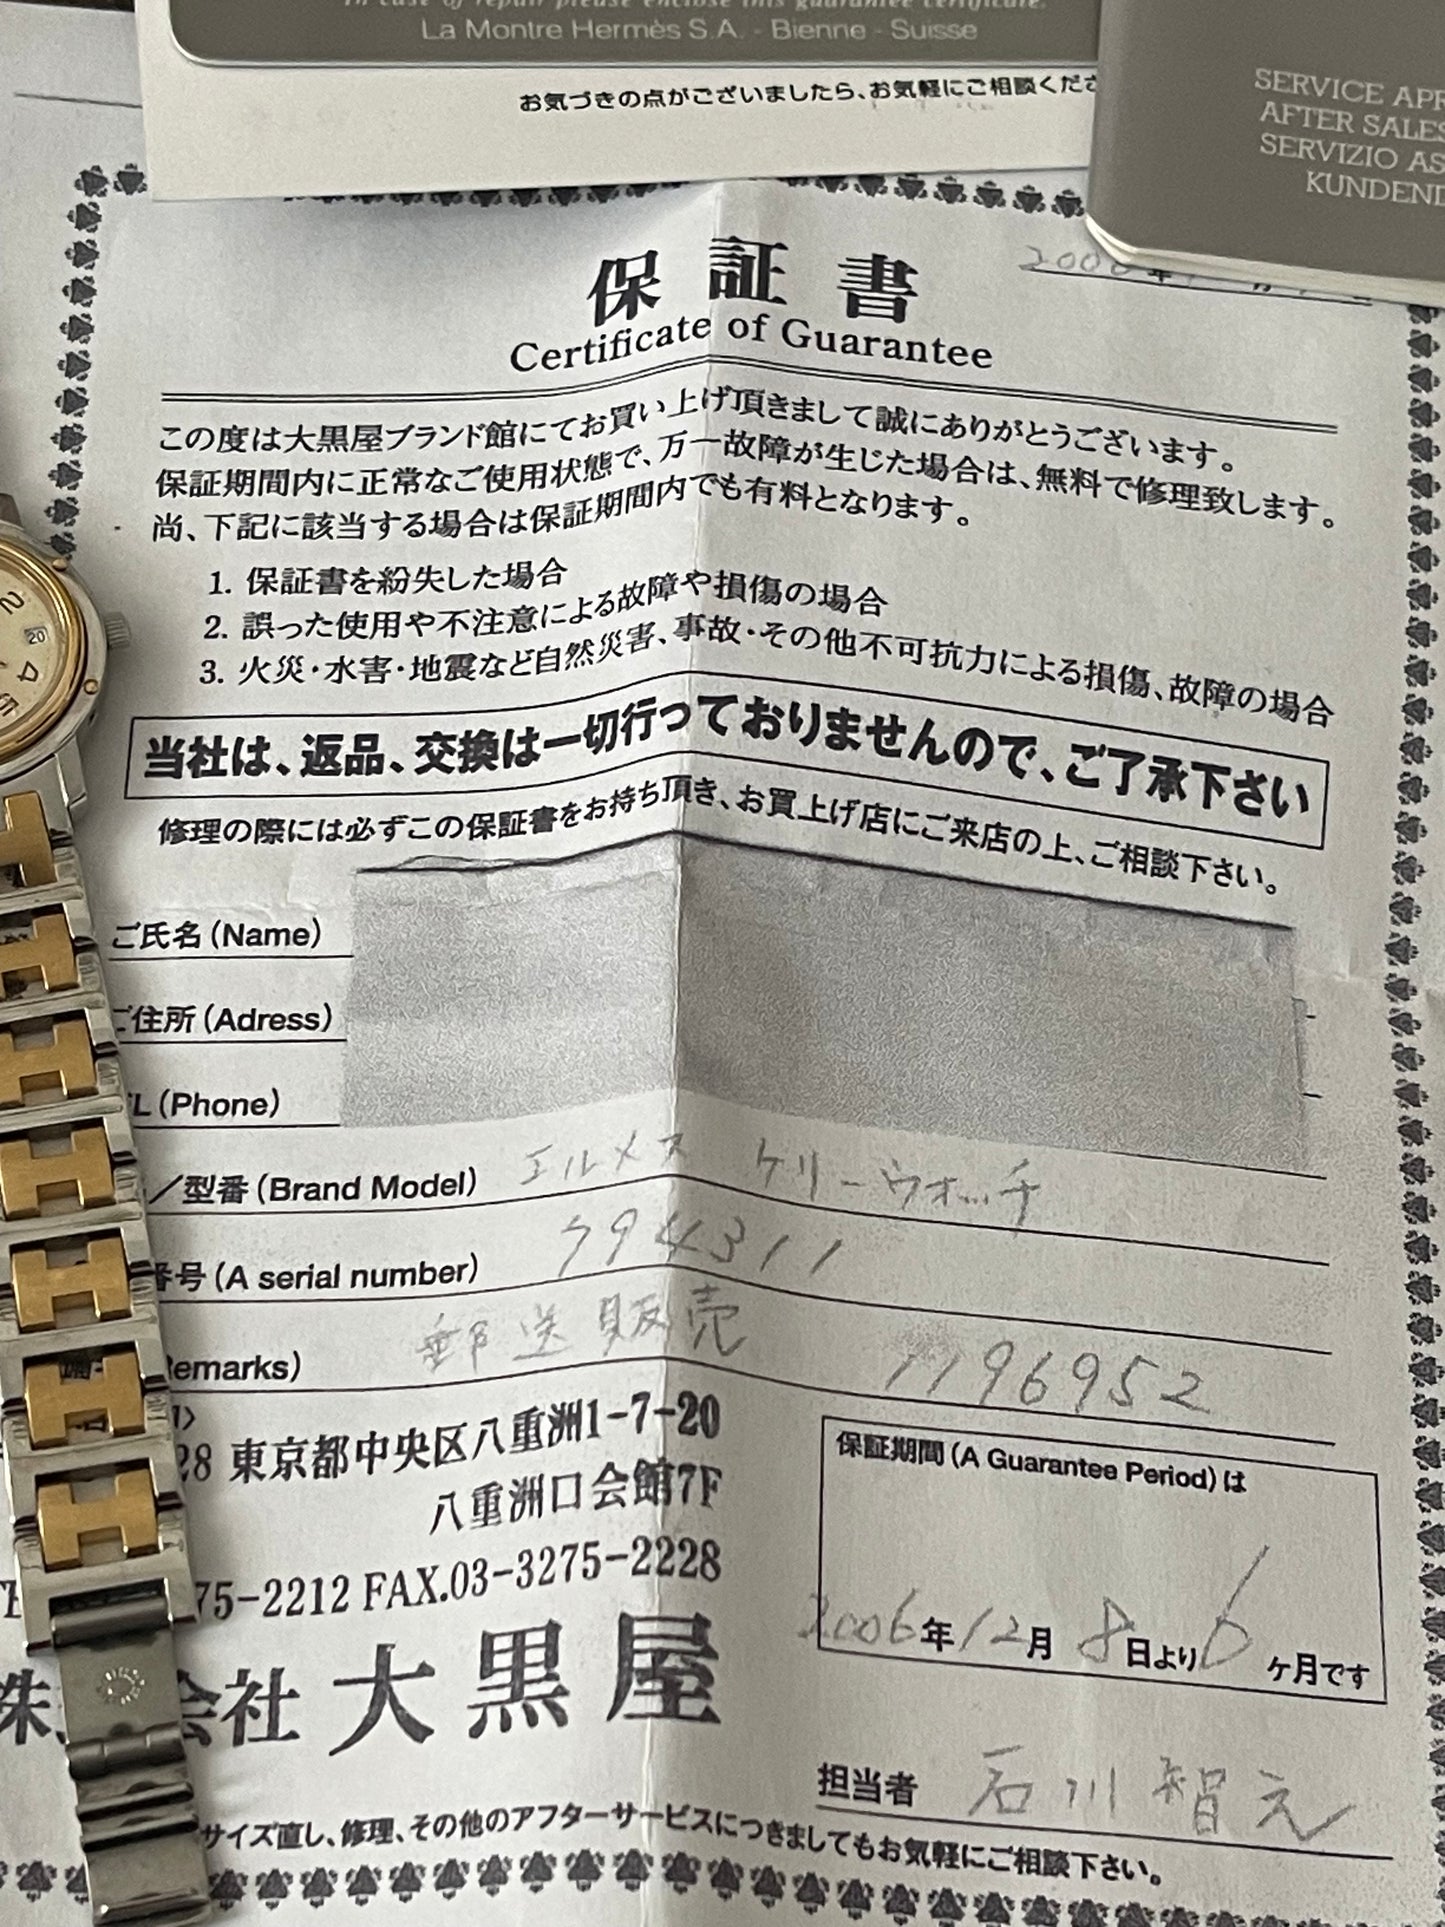 In case of repair please enclose this guarantee certificate.
La Montre Hermès S.A. - Bienne - Suisse
お気づきの点がございましたら、お気軽にご相談くださ
SERVICE
AFTER SALES
SERVIZIO
保証書
Certificate of Guarantee
この度は大黒屋ブランド館にてお買い上げ頂きまして誠にありがとうございます。
保証期間内に正常なご使用状態で、万一故障が生じた場合は、無料で修理致します。
尚、下記に該当する場合は保証期間内でも有料となります。
1. 保証書を紛失した場合
2. 誤った使用や不注意による故障や損傷の場合
3. 火災・水害・地震など自然災害、事故・その他不可抗力による損傷、故障の場合
当社は、返品、交換は一切行っておりませんので、ご了承下さい
修理の際には必ずこの保証書をお持ち頂き、お買上げ店にご来店の上、ご相談下さい。
ご氏名(Name)
ご住所(Adress)
(Phone)
／型番(Brand Model) エルメス ケリーウォッチ
番号(A serial number) 794311
郵送販売 1196952
28 東京都中央区八重洲1-7-20
八重洲口会館7F
75-2212 FAX.03-3275-2228
会社 大黒屋
保証期間(A Guarantee Period)は
2006年12月8日より6ヶ月です
担当者 石川智元
サイズ直し、修理、その他のアフターサービスにつきましてもお気軽にご相談下さい。
20